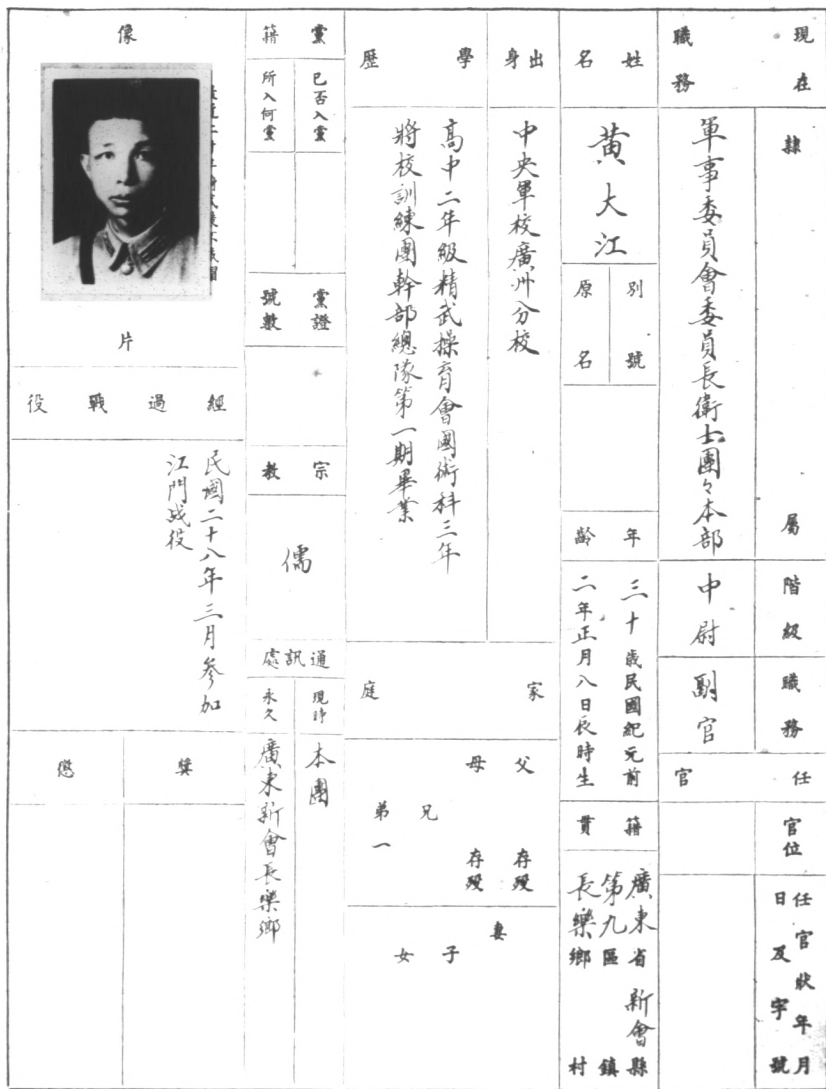 現在職務
隸屬
軍事委員會委員長衛士團々本部
階級
中尉
職務
副官
任官
官位
任官狀年月日及字號
姓名
黃大江
別號
原名
年齡
三十歲民國紀元前
二年正月八日辰時生
籍貫
廣東省新會縣
第九區鎮
長樂鄉村
出身
中央軍校廣州分校
學歷
高中二年級精武操育會國術科三年
將校訓練團幹部總隊第一期畢業
家庭
父
存歿
母
存歿
兄
弟一
妻
子
女
黨籍
已否入黨
所入何黨
黨證號數
宗教
儒
通訊處
現時
本團
永久
廣東新會長樂鄉
像片
經過戰役
民國二十八年三月參加
江門戰役
獎
懲